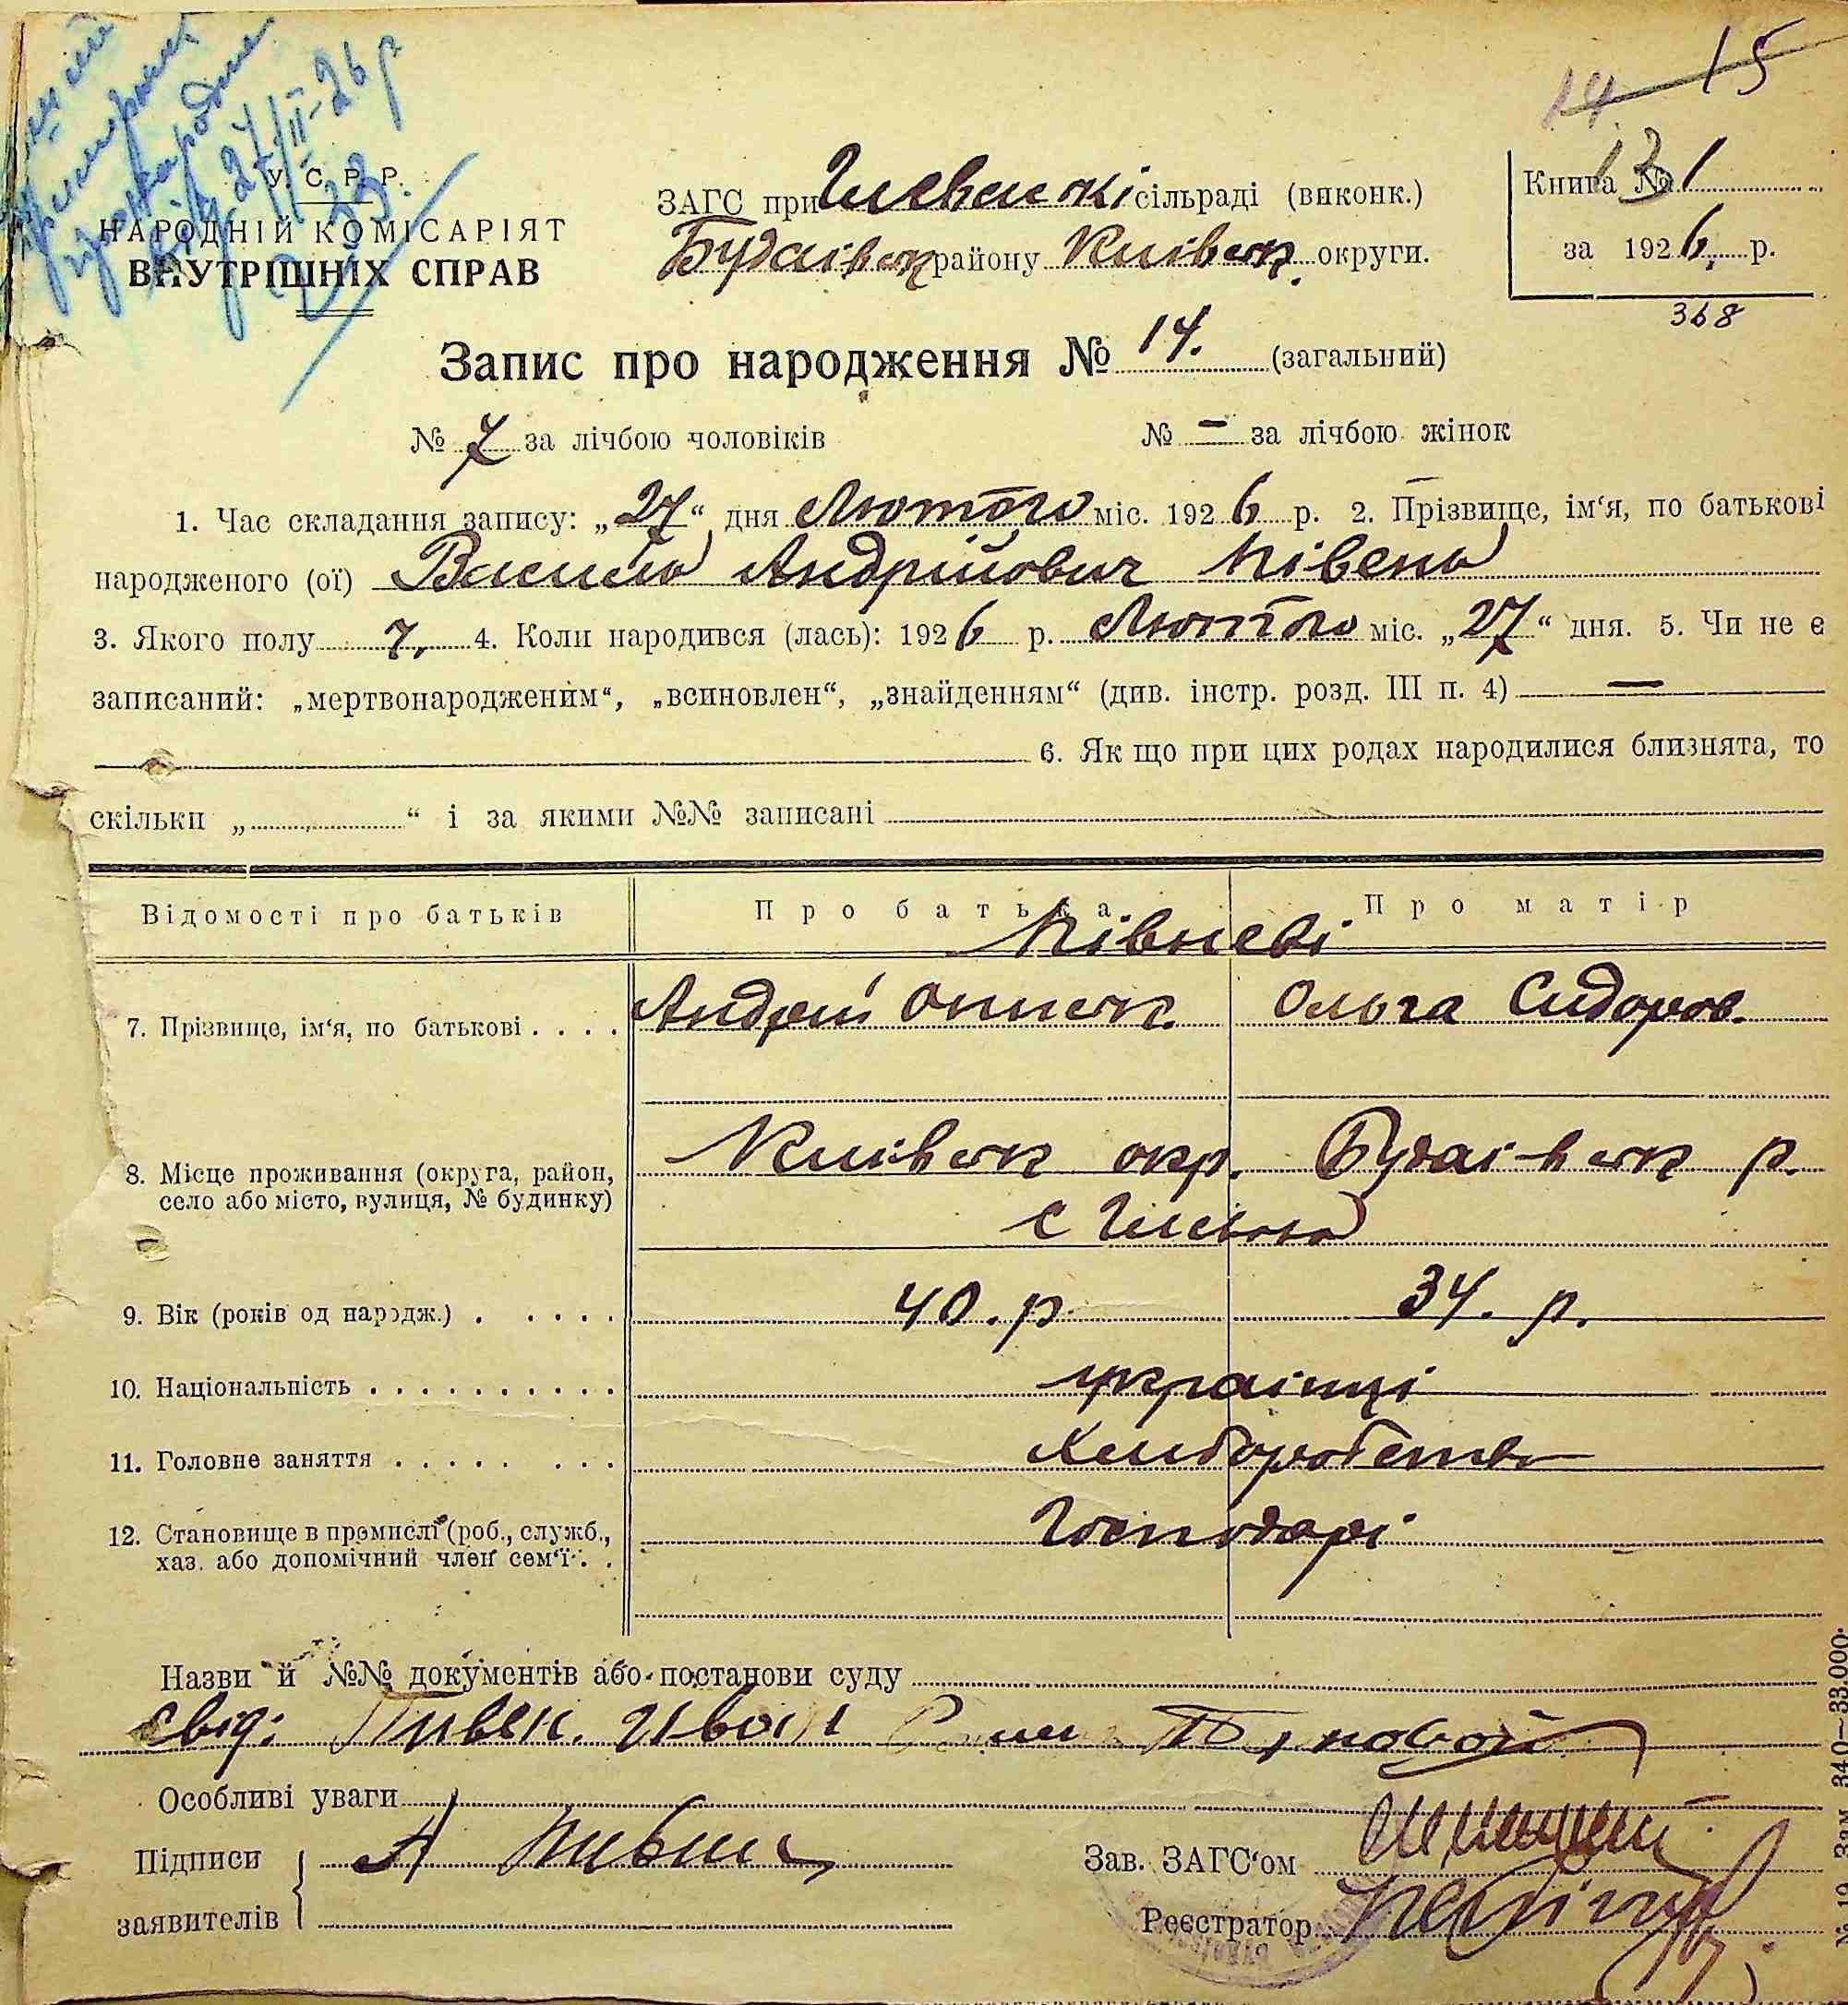 14 15
У. С. Р. Р.
НАРОДНІЙ КОМІСАРІЯТ
ВНУТРІШНІХ СПРАВ
27/II-26 р
ЗАГС при сільраді (виконк.)
Будаївськ району Київськ. округи.
Книга № 1
13
за 1926, р.
368
Запис про народження № 14. (загальний)
№ 7 за лічбою чоловіків № – за лічбою жінок
1. Час складання запису: „27“ дня Лютого міс. 1926 р. 2. Прізвище, ім‘я, по батькові
народженого (ої) Василь Андрійович Півень
3. Якого полу ч, 4. Коли народився (лась): 1926 р. Лютого міс. „27“ дня. 5. Чи не є
записаний: „мертвонародженим“, „всиновлен“, „знайденням“ (див. інстр. розд. III п. 4) —
6. Як що при цих родах народилися близнята, то
скільки „ “ і за якими №№ записані
Відомості про батьків Про батька Про матір
Півневі
7. Прізвище, ім‘я, по батькові . . . . Андрій Ониськ. Ольга Сидоров.
8. Місце проживання (округа, район, Київськ окр. Будаївськ р.
село або місто, вулиця, № будинку) с
9. Вік (років од народж.) . . . . . 40. р 34. р.
10. Національність . . . . . . . . . . українці
11. Головне заняття . . . . . . . . Хліборобство
12. Становище в промислі (роб., служб., Господарі
хаз. або допомічний член сем‘ї . .
Назви й №№ документів або постанови суду
Свід: Пивен. Иван
Особливі уваги
Підписи А Пивень Зав. ЗАГС‘ом
заявителів Реєстратор
№ 19 Зам. 340—33.000.